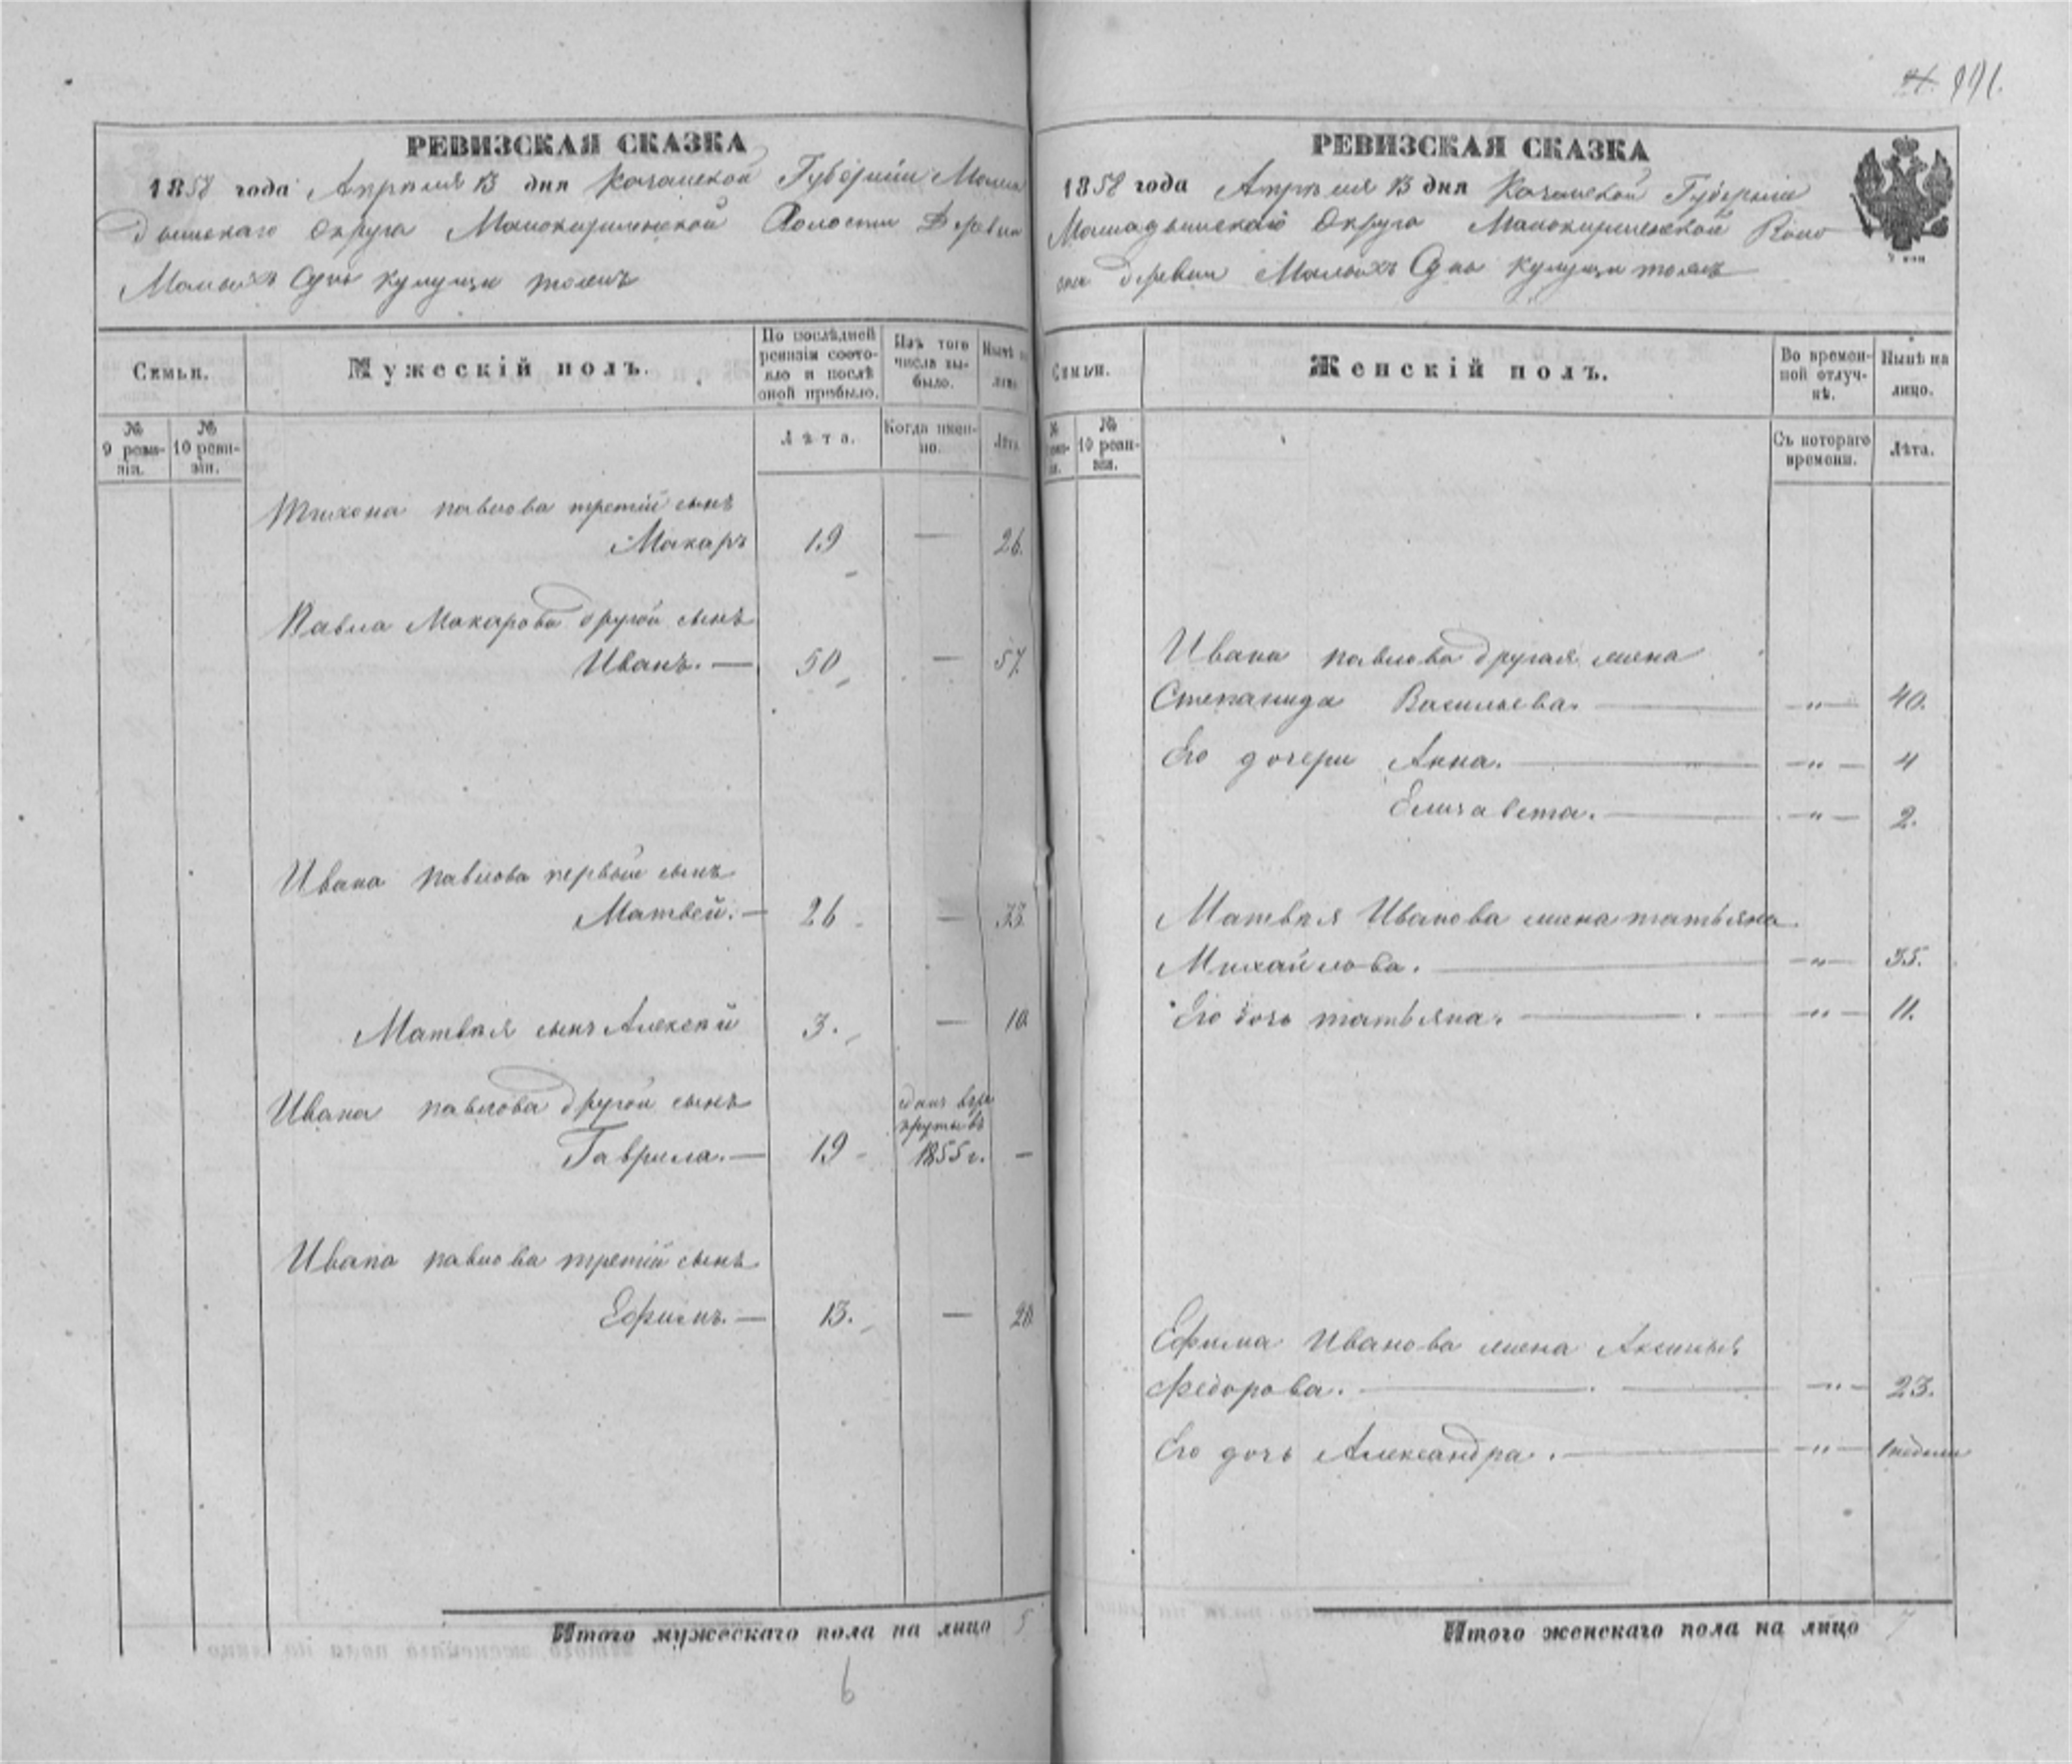 РЕВИЗСКАЯ СКАЗКА
1858 года Апреля 13 дня Казанской Губерніи Мама
дышскаго Округа Мамокирменской Волости Деревни
Малыхъ Сунь Кулущи тожъ
Семьи.
Мужескій полъ.
По послѣдней ревизіи состояло и послѣ оной прибыло.
Изъ того числа выбыло.
Нынѣ на лицо.
№ 9 ревизіи.
№ 10 ревизіи.
Лѣта.
Когда именно.
Лѣта.
Тихона павлова третій сынъ
Макаръ 19 — 26.
Павла Макарова другой сынъ
Иванъ. — 50 — 57.
Ивана павлова первый сынъ
Матвей. — 26 — 33.
Матвѣя сынъ Алексѣй 3. — 10.
Ивана павлова другой сынъ
Гаврила. — 19 сданъ в рекруты въ 1855 г. —
Ивана павлова третій сынъ
Ефимъ. — 13. — 20.
Итого мужескаго пола на лицо 5
6
991.
РЕВИЗСКАЯ СКАЗКА
1858 года Апрѣля 13 дня Казанской Губерніи
Мамадышскаго Округа Мамокирменской Воло
сти деревни Малыхъ Сунь Кулущи тожъ
Семьи.
Женскій полъ.
Во временной отлучкѣ.
Нынѣ на лицо.
№ 10 ревизіи.
Съ котораго времени.
Лѣта.
Ивана павлова другая жена
Степанида Васильева. — " — 40.
Его дочери Анна. — " — 4
Елизавета. — " — 2.
Матвѣя Иванова жена татьяна
Михайлова. — " — 35.
Его дочь татьяна. — " — 11.
Ефима Иванова жена Аксинья
Федорова. — " — 23.
Его дочь Александра. — " — 1 недели
Итого женскаго пола на лицо 7